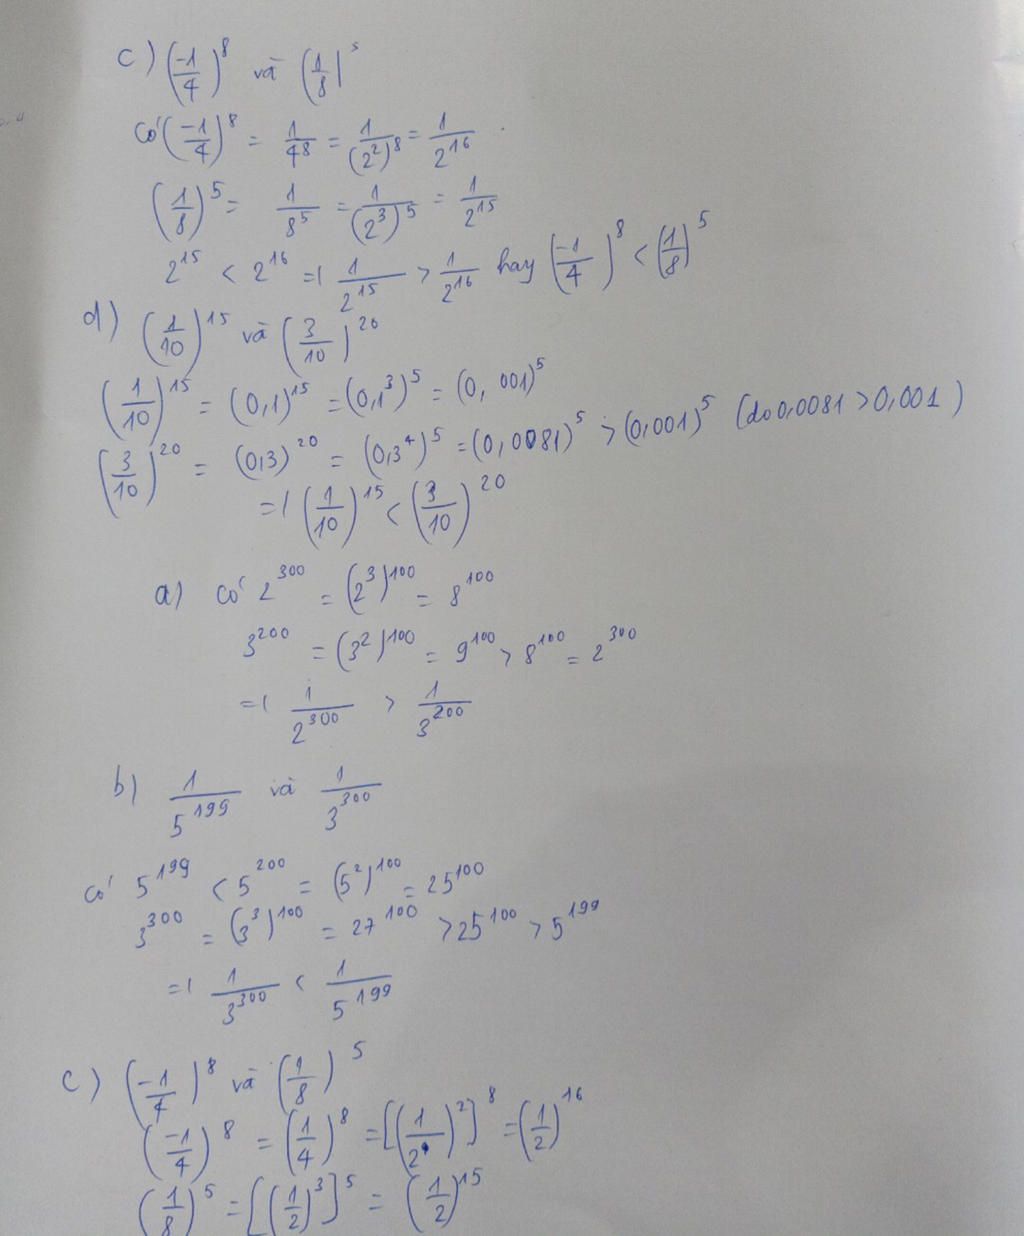 c) (-1/4)^8 và (1/8)^5
Có (-1/4)^8 = 1/4^8 = 1/(2^2)^8 = 1/2^16
(1/8)^5 = 1/8^5 = 1/(2^3)^5 = 1/2^15
2^15 < 2^16 =) 1/2^15 > 1/2^16 hay (-1/4)^8 < (1/8)^5
d) (1/10)^15 và (3/10)^20
(1/10)^15 = (0,1)^15 = (0,1^3)^5 = (0,001)^5
(3/10)^20 = (0,3)^20 = (0,3^4)^5 = (0,0081)^5 > (0,001)^5 (do 0,0081 > 0,001)
=) (1/10)^15 < (3/10)^20
a) Có 2^300 = (2^3)^100 = 8^100
3^200 = (3^2)^100 = 9^100 > 8^100 = 2^300
=) 1/2^300 > 1/3^200
b) 1/5^199 và 1/3^300
Có 5^199 < 5^200 = (5^2)^100 = 25^100
3^300 = (3^3)^100 = 27^100 > 25^100 > 5^199
=) 1/3^300 < 1/5^199
c) (-1/4)^8 và (1/8)^5
(-1/4)^8 = (1/4)^8 = [(1/2)^2]^8 = (1/2)^16
(1/8)^5 = [(1/2)^3]^5 = (1/2)^15